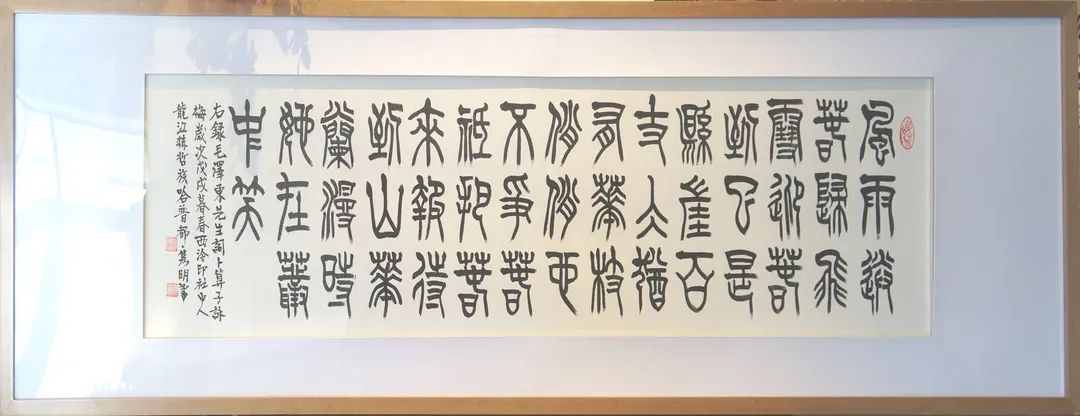 風雨送
春歸飛
雪迎春
到已是
縣崖百
丈仌猶
有華枝
俏俏也
不爭春
祗把春
來報待
到山華
蘭漫時
她在叢
中笑
右錄毛澤東先生詞卜算子詠
梅歲次戊戌暮春西泠印社中人
龍江赫哲族哈普都·雋明書